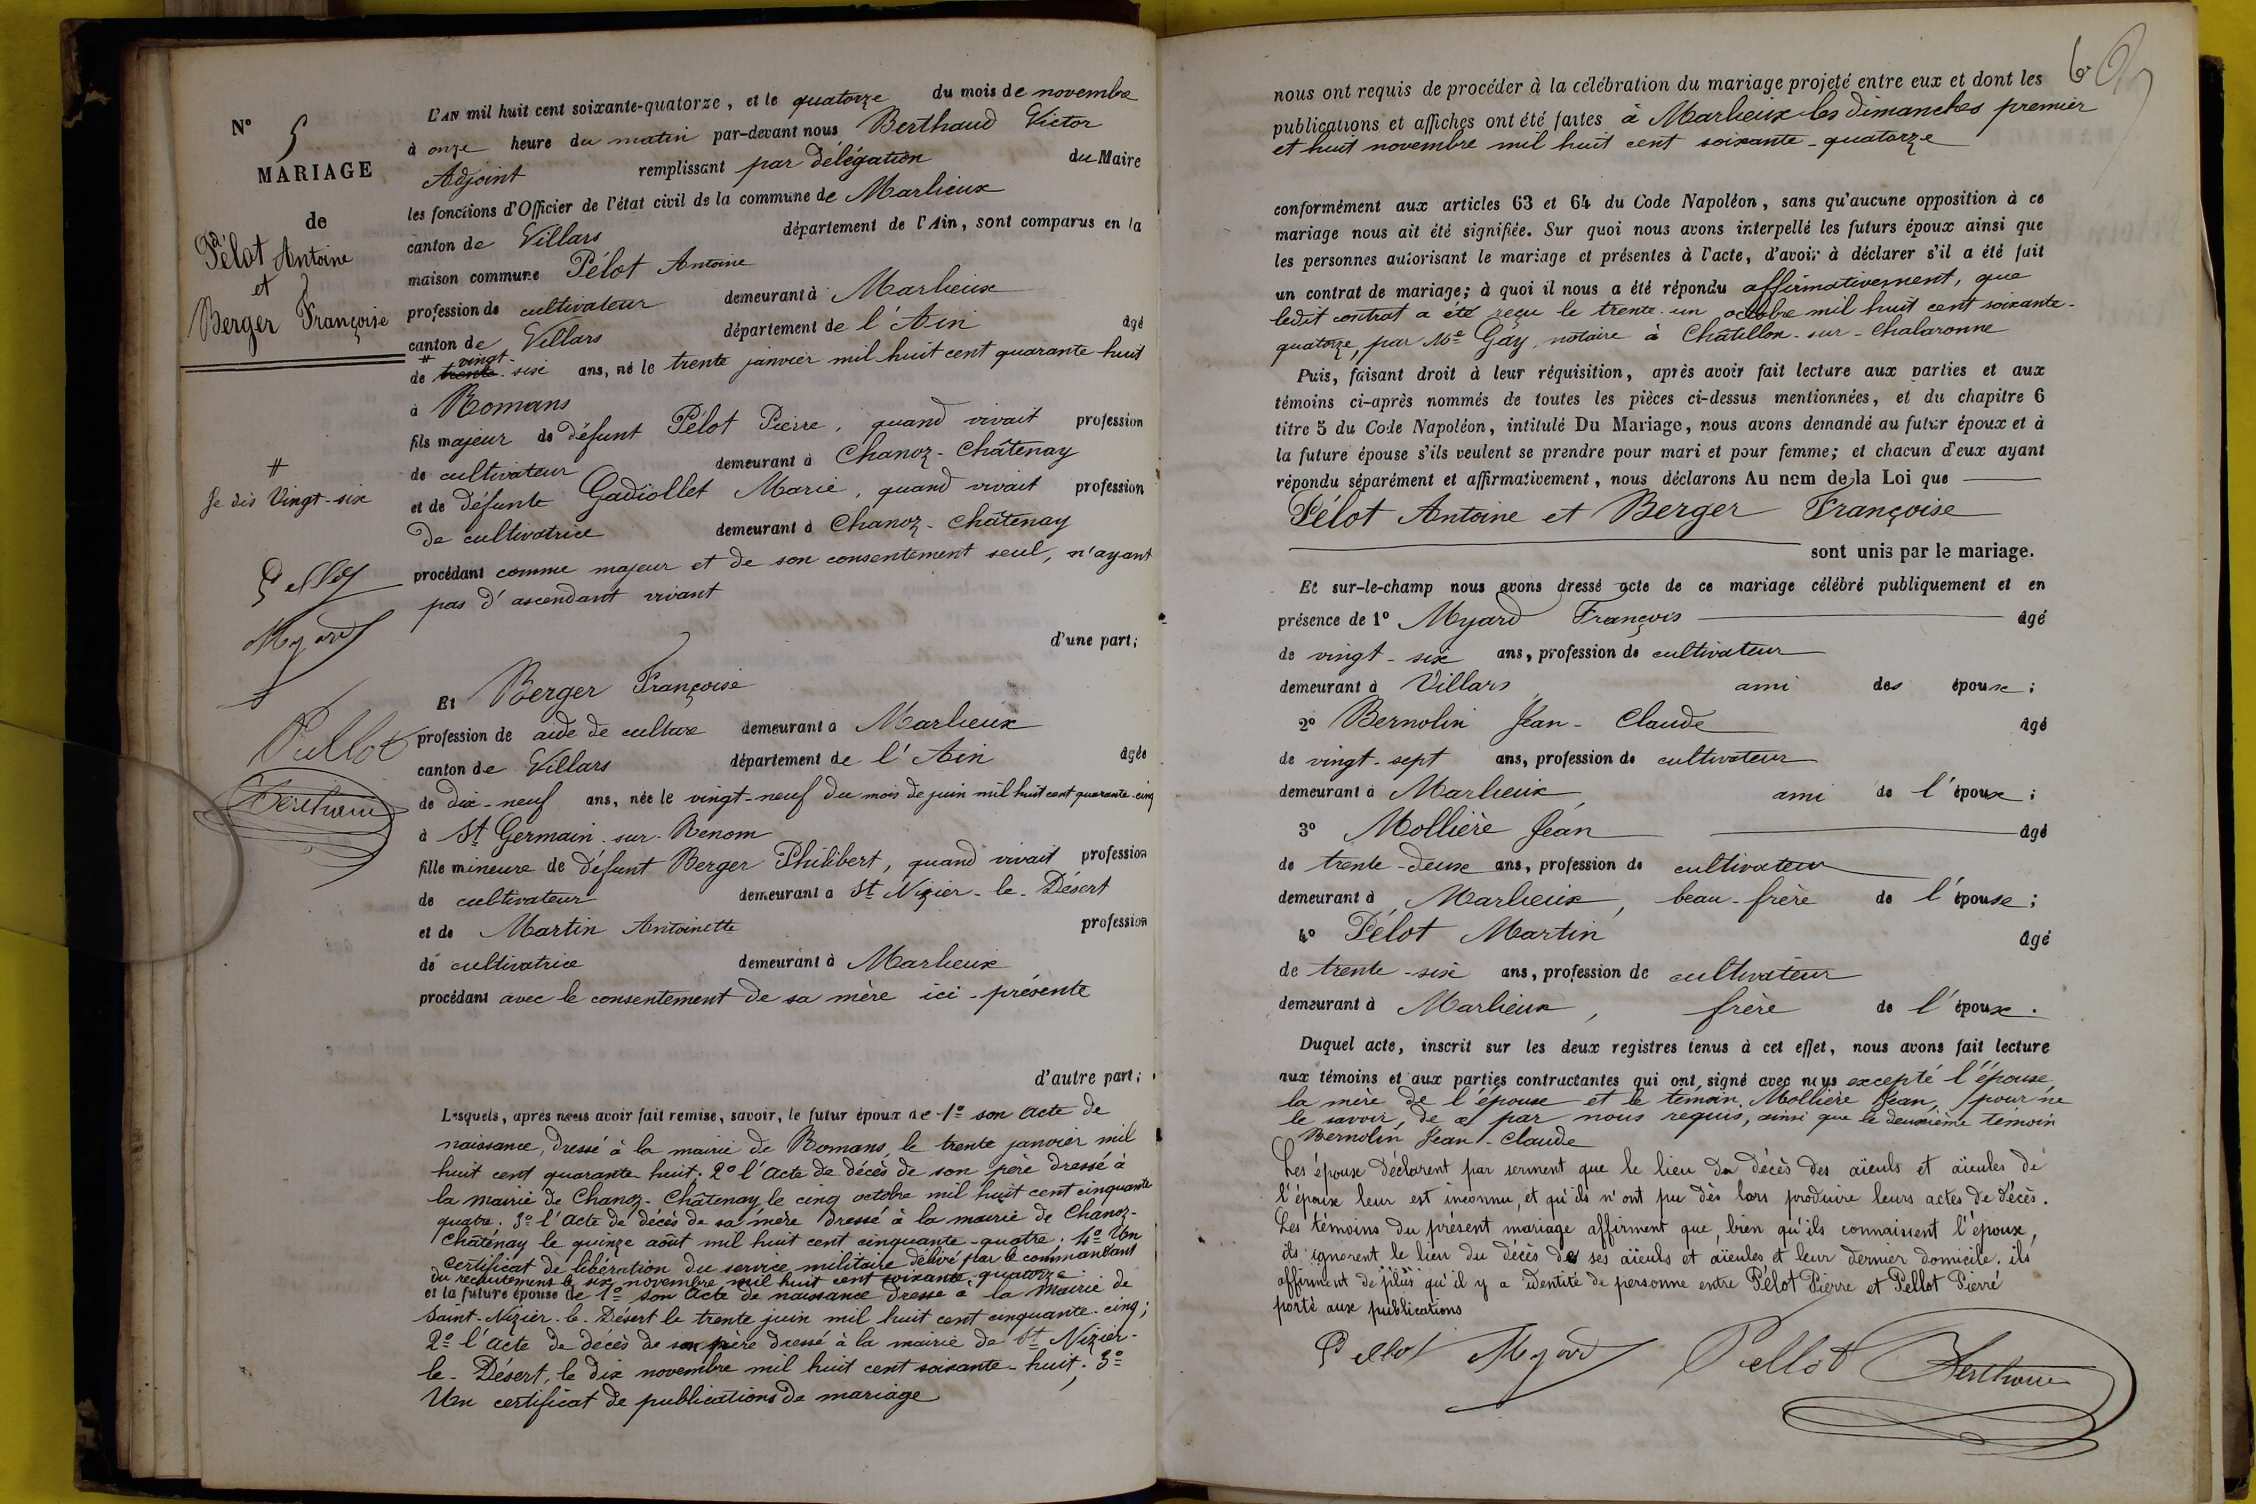 N° 5
MARIAGE
de
Pélot Antoine
et
Berger Françoise
#
Je dis Vingt-six
Pellot
Myard
Pellot
Berthaud
L'AN mil huit cent soixante-quatorze, et le quatorze du mois de novembre
à onze heure du matin par-devant nous Berthaud Victor
Adjoint remplissant par délégation du Maire
les fonctions d'Officier de l'état civil de la commune de Marlieux
canton de Villars département de l'Ain, sont comparus en la
maison commune Pélot Antoine
profession de cultivateur demeurant à Marlieux
canton de Villars département de l'Ain âgé
# vingt
de trente-six ans, né le trente janvier mil huit cent quarante huit
à Romans
fils majeur de défunt Pélot Pierre, quand vivait profession
de cultivateur demeurant à Chanoz-Châtenay
et de défunte Gadiollet Marie, quand vivait profession
de cultivatrice demeurant à Chanoz-Châtenay
procédant comme majeur et de son consentement seul, n'ayant
pas d'ascendant vivant
d'une part;
Et Berger Françoise
profession de aide de culture demeurant à Marlieux
canton de Villars département de l'Ain âgée
de dix-neuf ans, née le vingt-neuf du mois de juin mil huit cent quarante-cinq
à St Germain-sur-Renom
fille mineure de défunt Berger Philibert, quand vivait profession
de cultivateur demeurant à St Nizier-le-Désert
et de Martin Antoinette profession
de cultivatrice demeurant à Marlieux
procédant avec le consentement de sa mère ici-présente
d'autre part;
Lesquels, après nous avoir fait remise, savoir, le futur époux de 1° son acte de
naissance, dressé à la mairie de Romans, le trente janvier mil
huit cent quarante huit; 2° l'acte de décès de son père dressé à
la mairie de Chanoz-Châtenay le cinq octobre mil huit cent cinquante
quatre; 3° l'acte de décès de sa mère dressé à la mairie de Chanoz-
Châtenay le quinze août mil huit cent cinquante-quatre; 4° Un
certificat de libération du service militaire délivré par le commandant
du recrutement le six novembre mil huit cent soixante-quatorze
et la future épouse de 1° son acte de naissance dressé à la mairie de
Saint-Nizier-le-Désert le trente juin mil huit cent cinquante-cinq;
2° l'acte de décès de son père dressé à la mairie de St Nizier-
le-Désert, le dix novembre mil huit cent soixante-huit; 3°
Un certificat de publications de mariage
6
nous ont requis de procéder à la célébration du mariage projeté entre eux et dont les
publications et affiches ont été faites à Marlieux les dimanches premier
et huit novembre mil huit cent soixante-quatorze
conformément aux articles 63 et 64 du Code Napoléon, sans qu'aucune opposition à ce
mariage nous ait été signifiée. Sur quoi nous avons interpellé les futurs époux ainsi que
les personnes autorisant le mariage et présentes à l'acte, d'avoir à déclarer s'il a été fait
un contrat de mariage; à quoi il nous a été répondu affirmativement, que
ledit contrat a été reçu le trente-un octobre mil huit cent soixante-
quatorze, par Me Gay, notaire à Châtillon-sur-Chalaronne
Puis, faisant droit à leur réquisition, après avoir fait lecture aux parties et aux
témoins ci-après nommés de toutes les pièces ci-dessus mentionnées, et du chapitre 6
titre 5 du Code Napoléon, intitulé Du Mariage, nous avons demandé au futur époux et à
la future épouse s'ils veulent se prendre pour mari et pour femme; et chacun d'eux ayant
répondu séparément et affirmativement, nous déclarons Au nom de la Loi que
Pélot Antoine et Berger Françoise
sont unis par le mariage.
Et sur-le-champ nous avons dressé acte de ce mariage célébré publiquement et en
présence de 1° Myard François âgé
de vingt-six ans, profession de cultivateur
demeurant à Villars ami des époux;
2° Bernolin Jean-Claude âgé
de vingt-sept ans, profession de cultivateur
demeurant à Marlieux, ami de l'époux;
3° Mollière Jean âgé
de trente-deux ans, profession de cultivateur
demeurant à Marlieux, beau-frère de l'épouse;
4° Pélot Martin âgé
de trente-six ans, profession de cultivateur
demeurant à Marlieux, frère de l'époux.
Duquel acte, inscrit sur les deux registres tenus à cet effet, nous avons fait lecture
aux témoins et aux parties contractantes qui ont signé avec nous excepté l'épouse,
la mère de l'épouse et le témoin Mollière Jean, pour ne
le savoir, de ce par nous requis, ainsi que le deuxième témoin
Bernolin Jean-Claude
Les époux déclarent par serment que le lieu du décès des aïeuls et aïeules de
l'époux leur est inconnu, et qu'ils n'ont pu dès lors produire leurs actes de décès.
Les témoins du présent mariage affirment que, bien qu'ils connaissent l'époux,
ils ignorent le lieu du décès de ses aïeuls et aïeules et leur dernier domicile. ils
affirment de plus qu'il y a identité de personne entre Pélot Pierre et Pellot Pierre
porté aux publications
Pellot Myard Pellot Berthaud